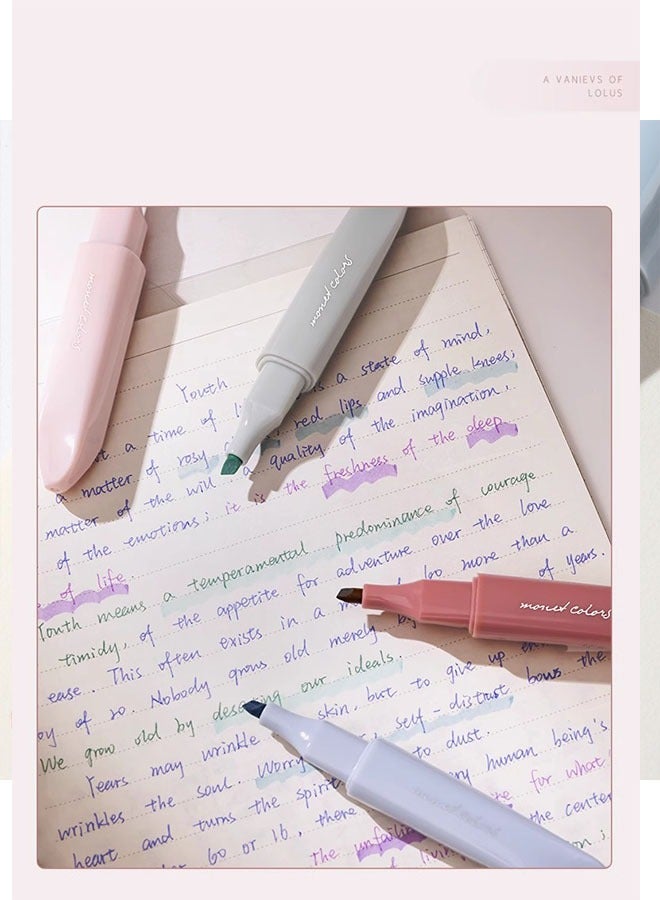 A VANIEVS OF
LOLUS
monet colors
monet colors
Youth is a state of mind,
a time of red lips and supple knees;
a matter of rosy
matter of the will a quality of the imagination,
of the emotions; it is the freshness of the deep
of life
Youth means a temperamental predominance of courage
timidy, of the appetite for adventure over the love
ease. This often exists in a 60 more than a
oy of 20. Nobody grows old merely of years.
We grow old by our ideals.
monet colors
Years may wrinkle skin, but to give up
wrinkles the soul. Worry self-distrust bows the
heart and turns the spirit to dust.
60 or 16, there human being's
the for what
the center
monet colors